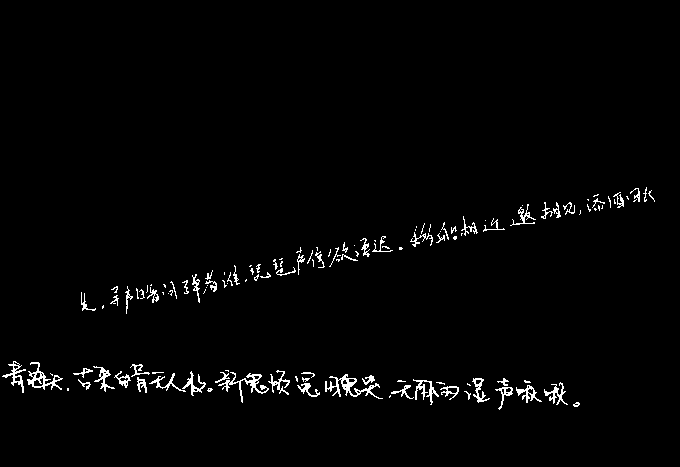 发，寻声暗问弹者谁，琵琶声停欲语迟。移船相近邀相见，添酒回
青海头，古来白骨无人收。新鬼烦冤旧鬼哭，天阴雨湿声啾啾。